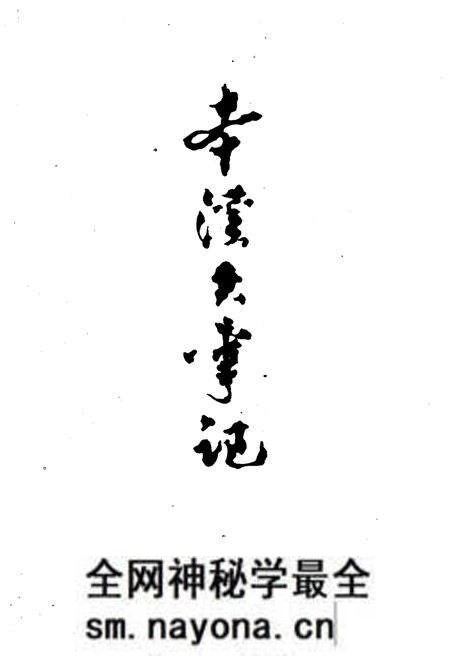 本溪大事记
全网神秘学最全
sm.nayona.cn